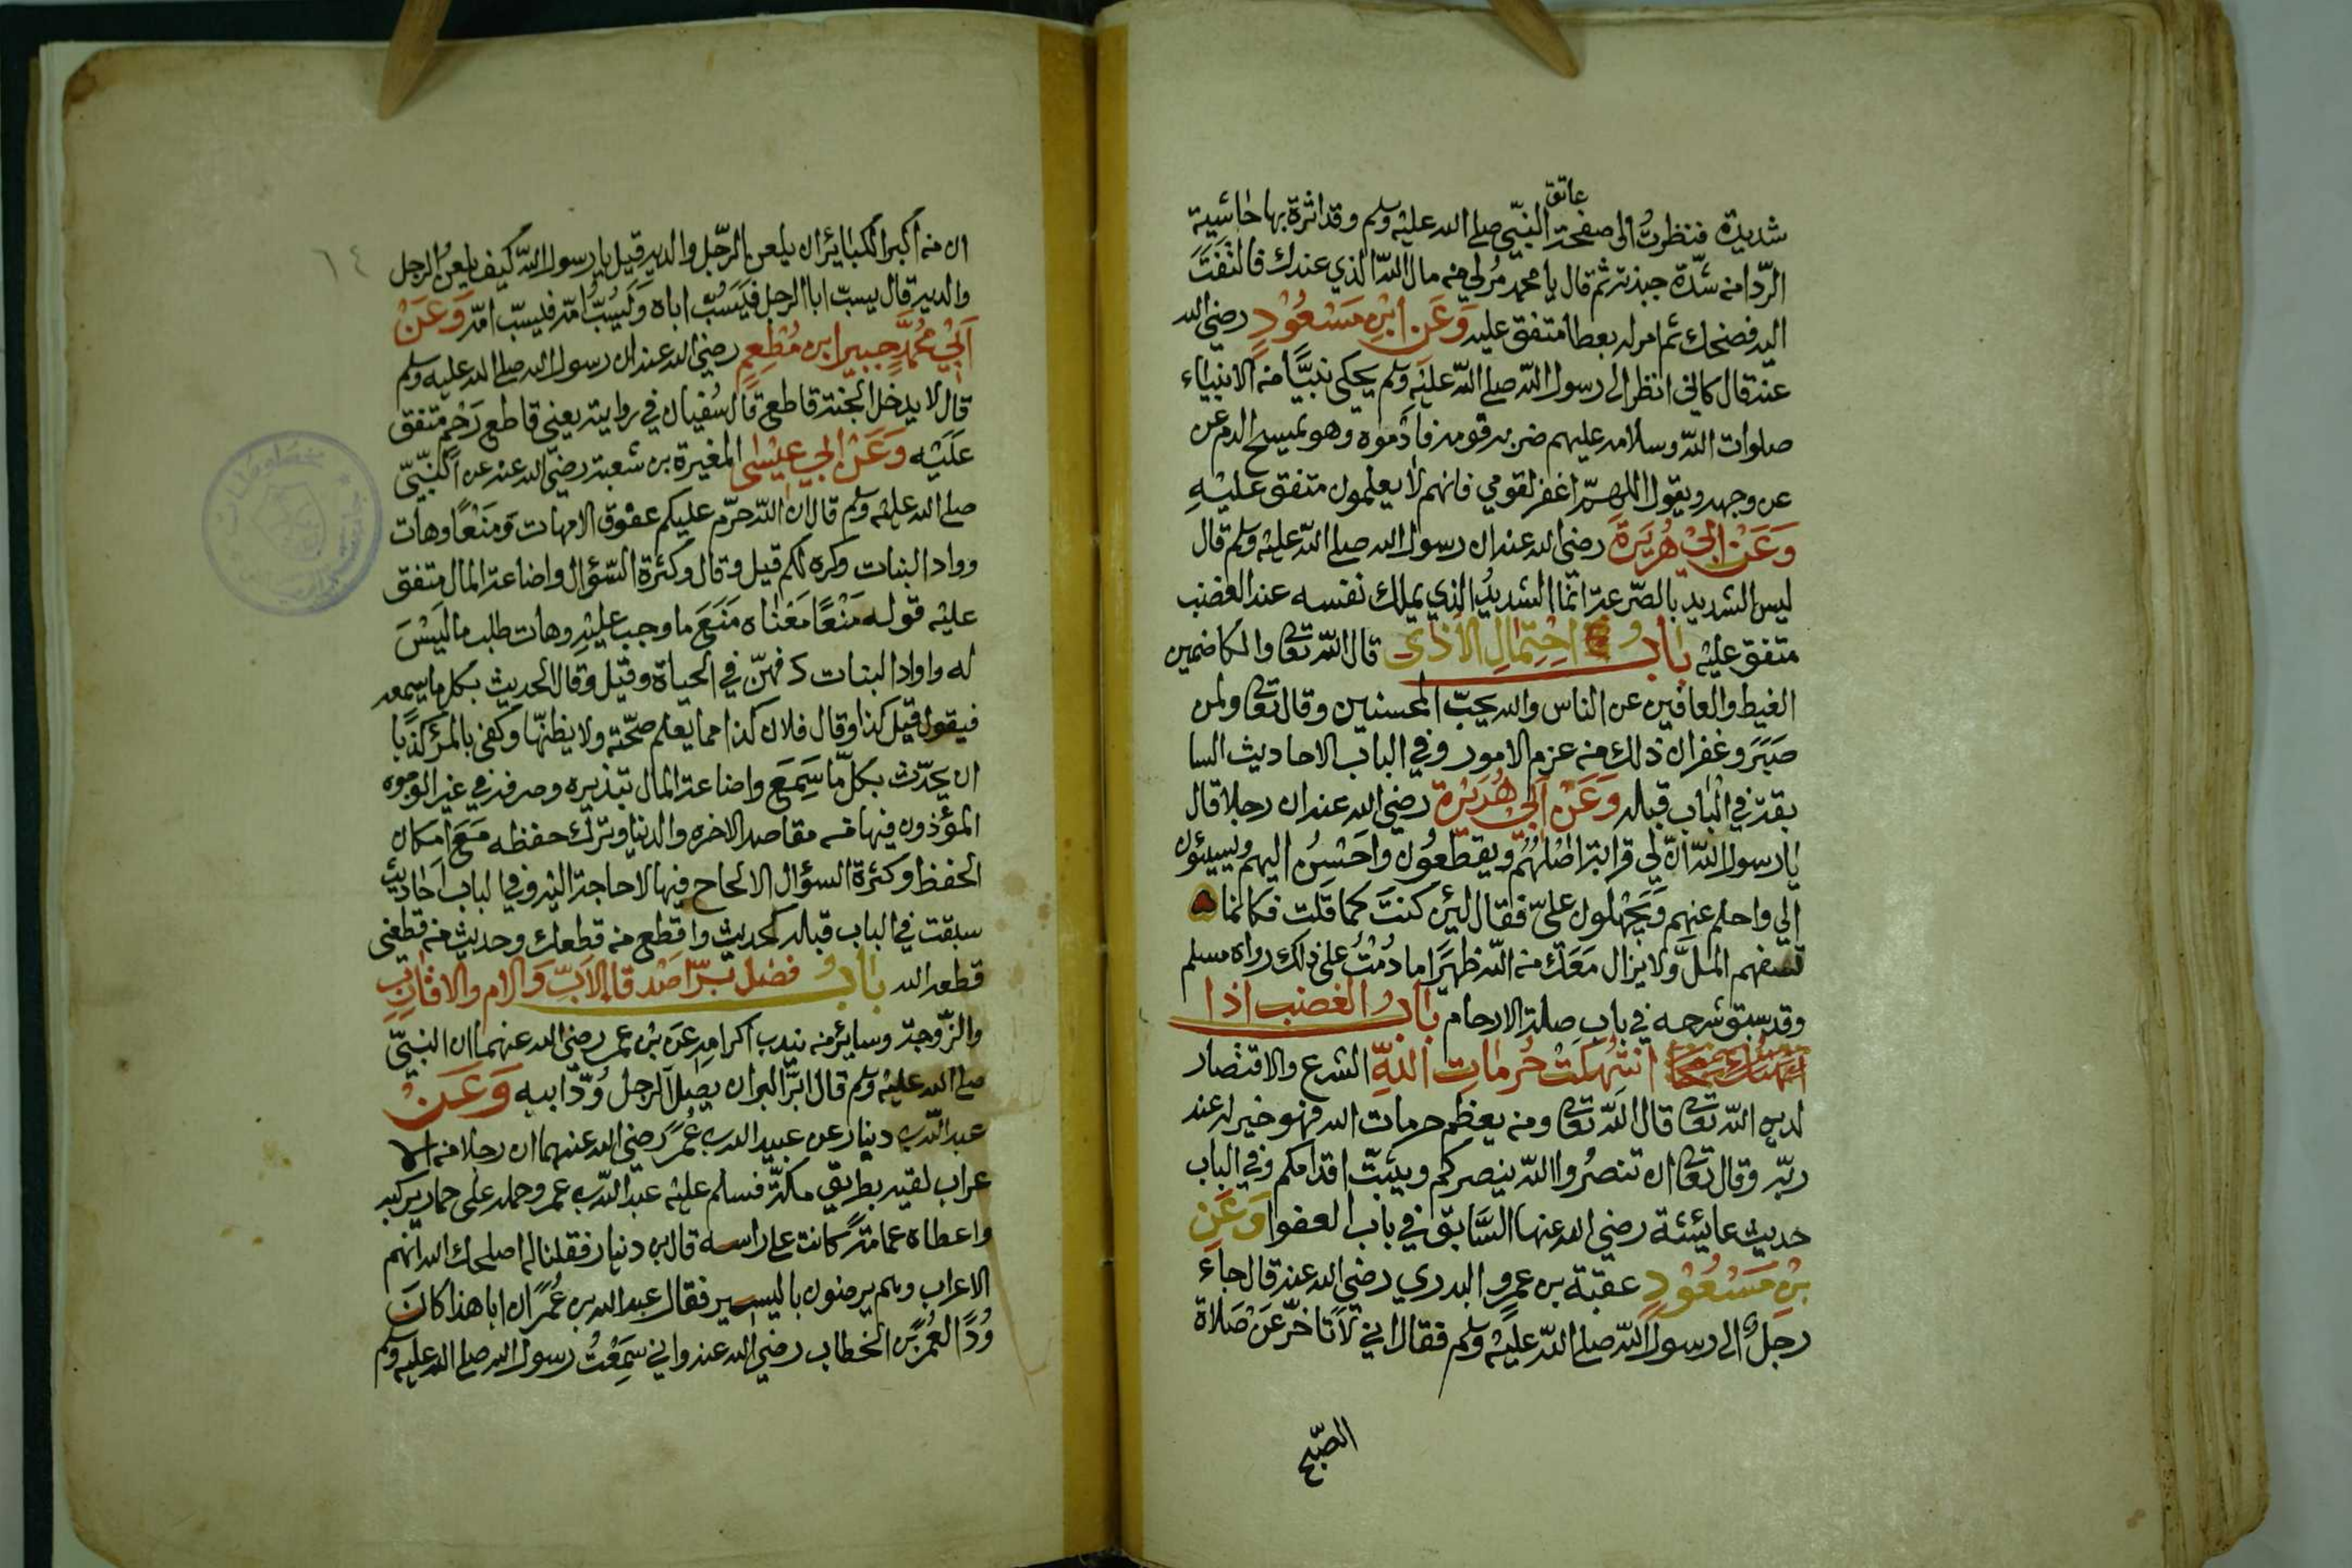 عاتق
شديدة فنظرتُ الى صفحة النبّي صلى الله عليه وسلم وقد اثرة بها حاشية
الرّدا منه شدّة جبذته ثم قال يا محمد مُرلي منه مال اللّه الذي عندك فالتفَتَ
اليه فضحك ثم امر له بعطا متفق عليه وَعَن ابْنِ مَسْعُوْدٍ رضي الله
عنه قال كاني انظر الى رسول اللّه صلى اللّه عليه وسلم يحكى نبيًّا منه الانبياء
صلوات اللّه وسلامه عليهم ضربه قومه فادموه وهو يمسح الدم عن
عن وجهه ويقول اللهمّ اغفر لقومي فانهم لا يعلمون متفق عليْهِ
وَعَنْ ابْي هُرَيرَة رضي الله عنه ان رسول الله صلى اللّه عليه وسلم قال
ليس الشديد بالصّرعة انّما الشديدُ الذي يملك نفسه عند الغضب
متفق عليه بابُ احْتِمالِ الاَذٰى قال اللّه تعا والكاضمين
الغيط والعافين عن الناس والله يحبّ المحسنين وقال تعا ولمن
صَبَرَ وغفر ان ذلك منه عزم الامور وفي الباب الاحاديث السا
بقة في الباب قبله وَعَنْ اَبْي هُرَيْرَة رضي الله عنه ان رجلا قال
يا رسول اللّه انّ لي قرابة اصْلهُمْ ويقطعُون واحْسِنُ اليهم ويسيئون
الي واحلم عنهم وَيَجْهلون عليّ فقال لئن كنتَ كما قلت فكانما
تسفهم المَلَّ ولا يزال مَعَك منه اللّه ظهيَرًا ما دُمْتُ على ذلك رواه مسلم
وقد سبق شرحه في باب صلة الارحام بابُ الغضب اذا
انتُهِكَتْ حُرمات اللهِ الشرع والاقتصار
لدين اللّه تعا قال اللّه تعا ومنه يعظم حرمات الله فهو خير له عند
ربّه وقال تعا ان تنصُروا اللّه ينصركم ويثبّت اقدامكم وفي الباب
حديث عائشة رضي الله عنها السَّابق في باب العفو وَعَنِ
بْنِ مَسْعُوْدٍ عقبة بن عمرٍو البدري رضي الله عنه قال جاء
رجلٌ الى رسول اللّه صلى اللّه عليه وسلم فقال اني لاَتاخّر عَنْ صَلاة
الصّبح
٦٤
ان منه اكبر الكبائر ان يلعن الرّجل والديه قيل يا رسول اللّه كيف يلعن الرجل
والديه قال يسبّ ابا الرجل فيَسُبُّ اباه وَيَسُبُّ امّه فيسبّ امّه وَعَنْ
اَبْي مُحمَّدٍ جبير ابن مُطْعِمٍ رضي الله عنه ان رسول الله صلى الله عليه وسلم
قال لا يدخل الجنة قاطع قال سُفيان في روايته يعنى قاطع رَحْمٍ متفق
عَلَيْه وَعَنْ ابْي عيْسٰى المغيرة بن شعبة رضي الله عنه عن النّبّي
صلى الله عليه وسلم قال ان اللّه حرّم عليكم عقوق الامهات وَمنَعًا وهات
وواد البنات وكره لكم قيل وقال وكثرة السّؤال واضاعة المال متفق
عليْه قوله مَنْعًا مَعْناه مَنَعَ ما وجب عليْهِ وهات طلب ما ليْسَ
له واواد البنات دفنهنّ في الحياة وقيْل وقال الحديث بكل ما يسمعه
فيقول قيْل كذا وقال فلان كذا مما يعلم صحّته ولا يظنّها وكفى بالمرْء كذبًا
ان يحدّث بكلّ ما سَمِعَ واضاعة المال تبذيره وصرفه في غير الوجوه
المؤذون فيها منه مقاصد الاخره والدنيا وترك حفظه مَعَ امكان
الحفظ وكثرة السؤال الالحاح فيها لا حاجة اليه وفي لباب احاديث
سبقت في الباب قبله كحديث واقطع منه قطعك وحديث منه قطعنى
قطعه الله بابُ فضل برّ اصْدقا الاَبّ وَالام والاقارب
والزّوجة وسايرُ منه يندب اكرامه عَن بْن عمر رضي الله عنهما ان النبيّ
صلى الله عليه وسلم قال ابرّ البر ان يصل الرجل وُدّ ابيه وَعَنْ
عبد اللّه بن دينار عن عبد الله بن عُمر رضي الله عنهما ان رجلا منه الا
عراب لقيه بطريق مكّة فسلم عليْه عبد اللّه بن عمر وحمله على حمار يركبه
واعطاه عمامة كانت على راسه قال بن دينار فقلنا له اصلحك الله انّهم
الاعراب وهم يرضون باليسير فقال عبد الله بن عُمَر ان ابا هذا كانَ
وُدًّا لعُمَرَ بن الخطاب رضي الله عنه واني سَمِعْتُ رسول الله صلى الله عليه وسلم